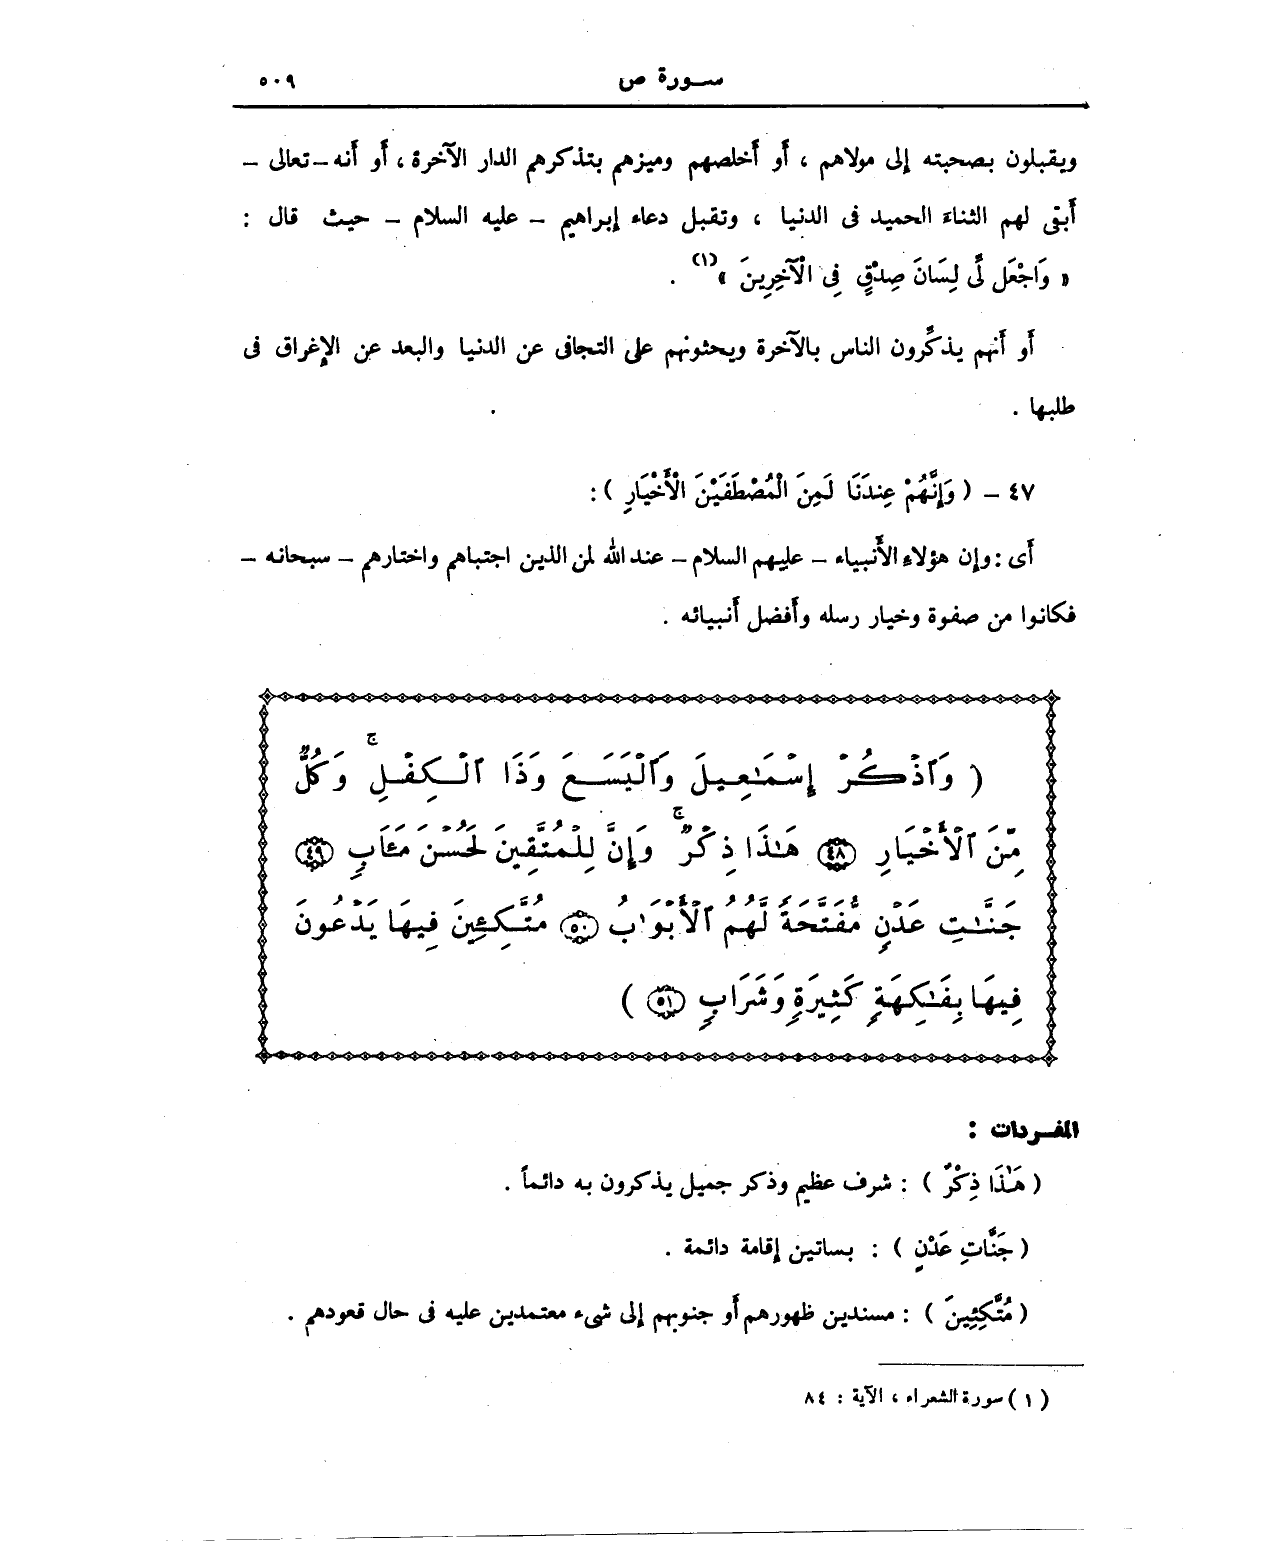 سورة ص
٥٠٩
ويقبلون بصحبته إلى مولاهم ، أو أخلصهم وميزهم بتذكرهم الدار الآخرة ، أو أنه – تعالى –
أبقى لهم الثناء الحميد فى الدنيا ، وتقبل دعاء إبراهيم – عليه السلام – حيث قال :
« وَاجْعَل لِّى لِسَانَ صِدْقٍ فِى الْآخِرِينَ »(١) .
أو أنهم يذكِّرون الناس بالآخرة ويحثونهم على التجافى عن الدنيا والبعد عن الإغراق فى
طلبها .
٤٧ – ( وَإِنَّهُمْ عِندَنَا لَمِنَ الْمُصْطَفَيْنَ الْأَخْيَارِ ) :
أى : وإن هؤلاء الأنبياء – عليهم السلام – عند الله لمن الذين اجتباهم واختارهم – سبحانه –
فكانوا من صفوة وخيار رسله وأفضل أنبيائه .
( وَٱذْكُرْ إِسْمَـٰعِيلَ وَٱلْيَسَعَ وَذَا ٱلْكِفْلِ ۚ وَكُلٌّ
مِّنَ ٱلْأَخْيَارِ ﴿٤٨﴾ هَـٰذَا ذِكْرٌ ۚ وَإِنَّ لِلْمُتَّقِينَ لَحُسْنَ مَـَٔابٍ ﴿٤٩﴾
جَنَّـٰتِ عَدْنٍ مُّفَتَّحَةً لَّهُمُ ٱلْأَبْوَٰبُ ﴿٥٠﴾ مُتَّكِـِٔينَ فِيهَا يَدْعُونَ
فِيهَا بِفَـٰكِهَةٍ كَثِيرَةٍ وَشَرَابٍ ﴿٥١﴾ )
المفـردات :
( هَـٰذَا ذِكْرٌ ) : شرف عظيم وذكر جميل يذكرون به دائماً .
( جَنَّاتِ عَدْنٍ ) : بساتين إقامة دائمة .
( مُتَّكِئِينَ ) : مسندين ظهورهم أو جنوبهم إلى شىء معتمدين عليه فى حال قعودهم .
( ١ ) سورة الشعراء ، الآية : ٨٤